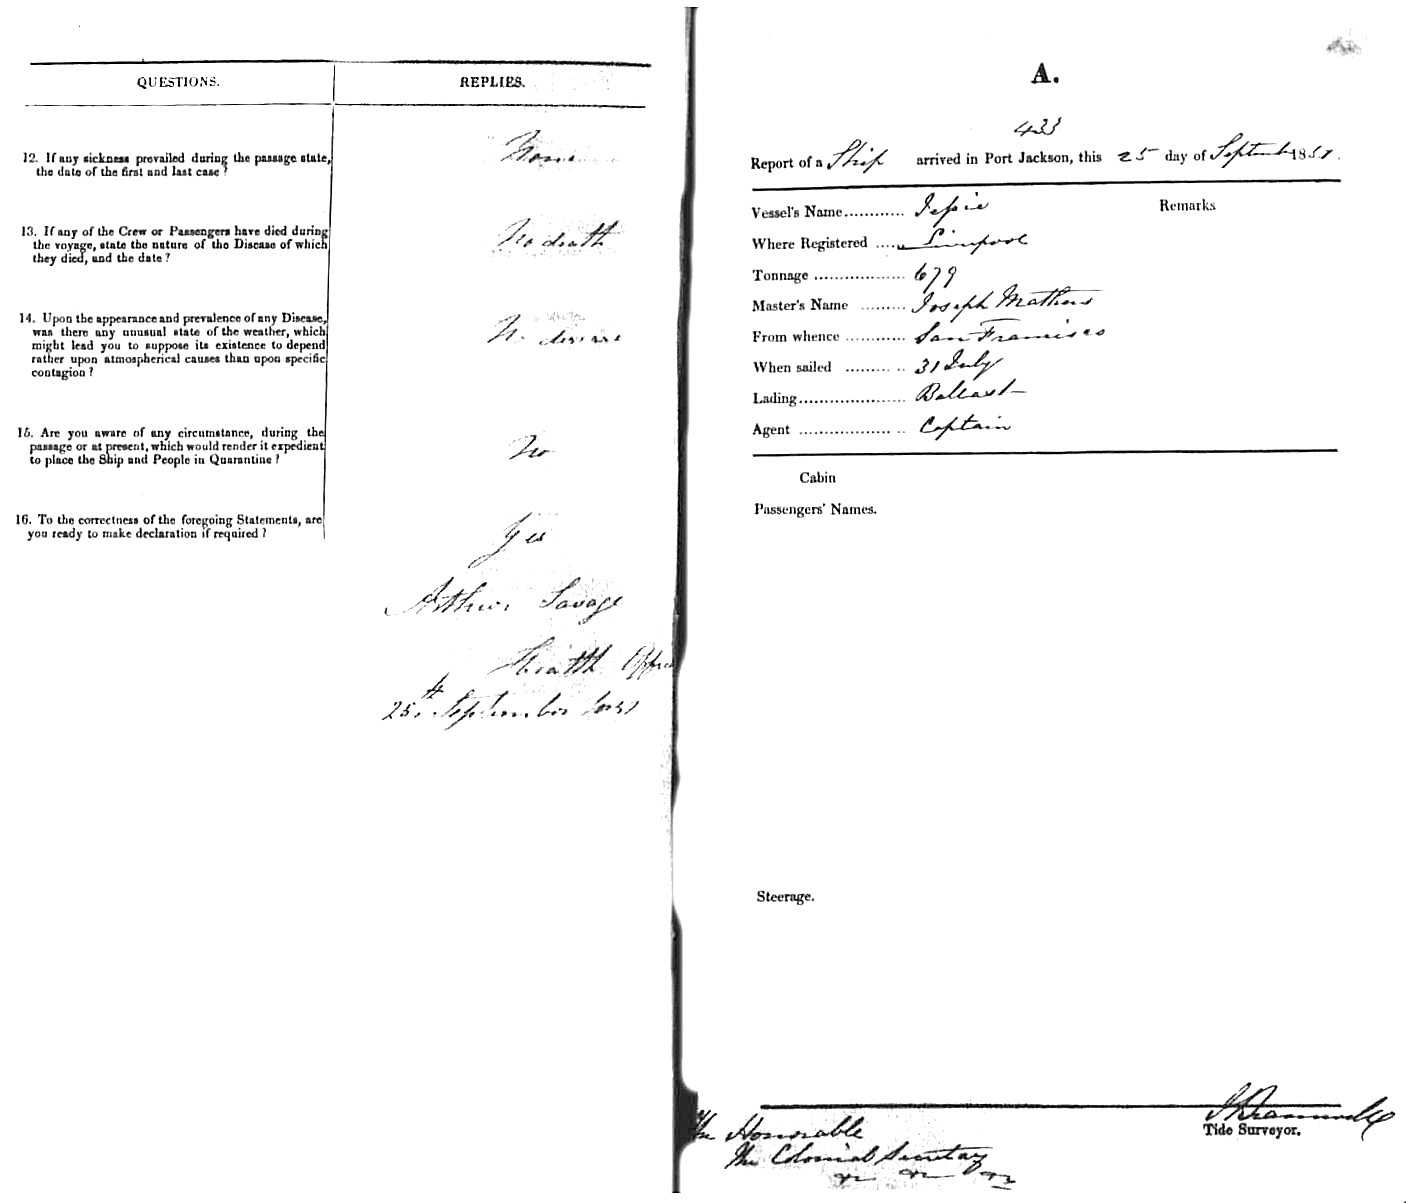 QUESTIONS.
REPLIES.
12. If any sickness prevailed during the passage state,
the date of the first and last case?
None
13. If any of the Crew or Passengers have died during
the voyage, state the nature of the Disease of which
they died, and the date?
No death
14. Upon the appearance and prevalence of any Disease,
was there any unusual state of the weather, which
might lead you to suppose its existence to depend
rather upon atmospherical causes than upon specific
contagion?
No disease
15. Are you aware of any circumstance, during the
passage or at present, which would render it expedient
to place the Ship and People in Quarantine?
No
16. To the correctness of the foregoing Statements, are
you ready to make declaration if required?
Yes
Arthur Savage
Health Office
25th September 1851
A.
433
Report of a Ship arrived in Port Jackson, this 25 day of September 1851.
Vessel's Name............ Jessie
Remarks
Where Registered ..... Liverpool
Tonnage .................. 679
Master's Name ......... Joseph Mathews
From whence ............ San Francisco
When sailed ......... .. 31 July
Lading...................... Ballast
Agent ................... .. Captain
Cabin
Passengers' Names.
Steerage.
Tide Surveyor.
The Honorable
The Colonial Secretary